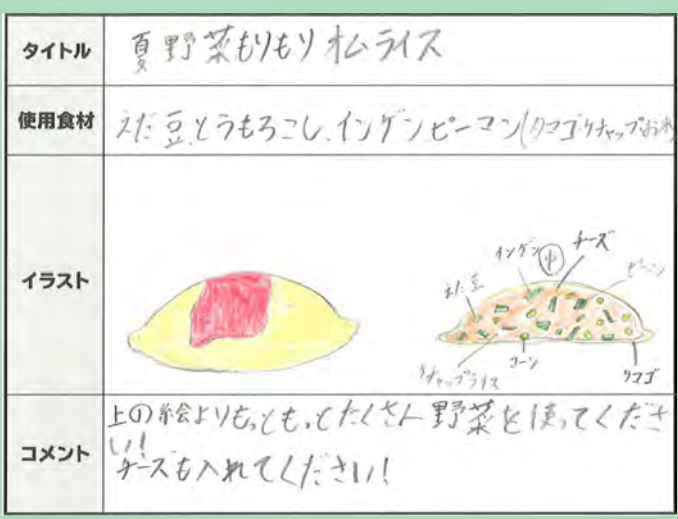 タイトル
夏野菜もりもりオムライス
使用食材
えだ豆、とうもろこし、インゲンピーマン(タマゴケチャップお米
イラスト
インゲン
中
チーズ
ピーマン
えだ豆
ケチャップライス
コーン
タマゴ
コメント
上の絵よりもっともっとたくさん野菜を使ってくださ
い!
チーズも入れてください!